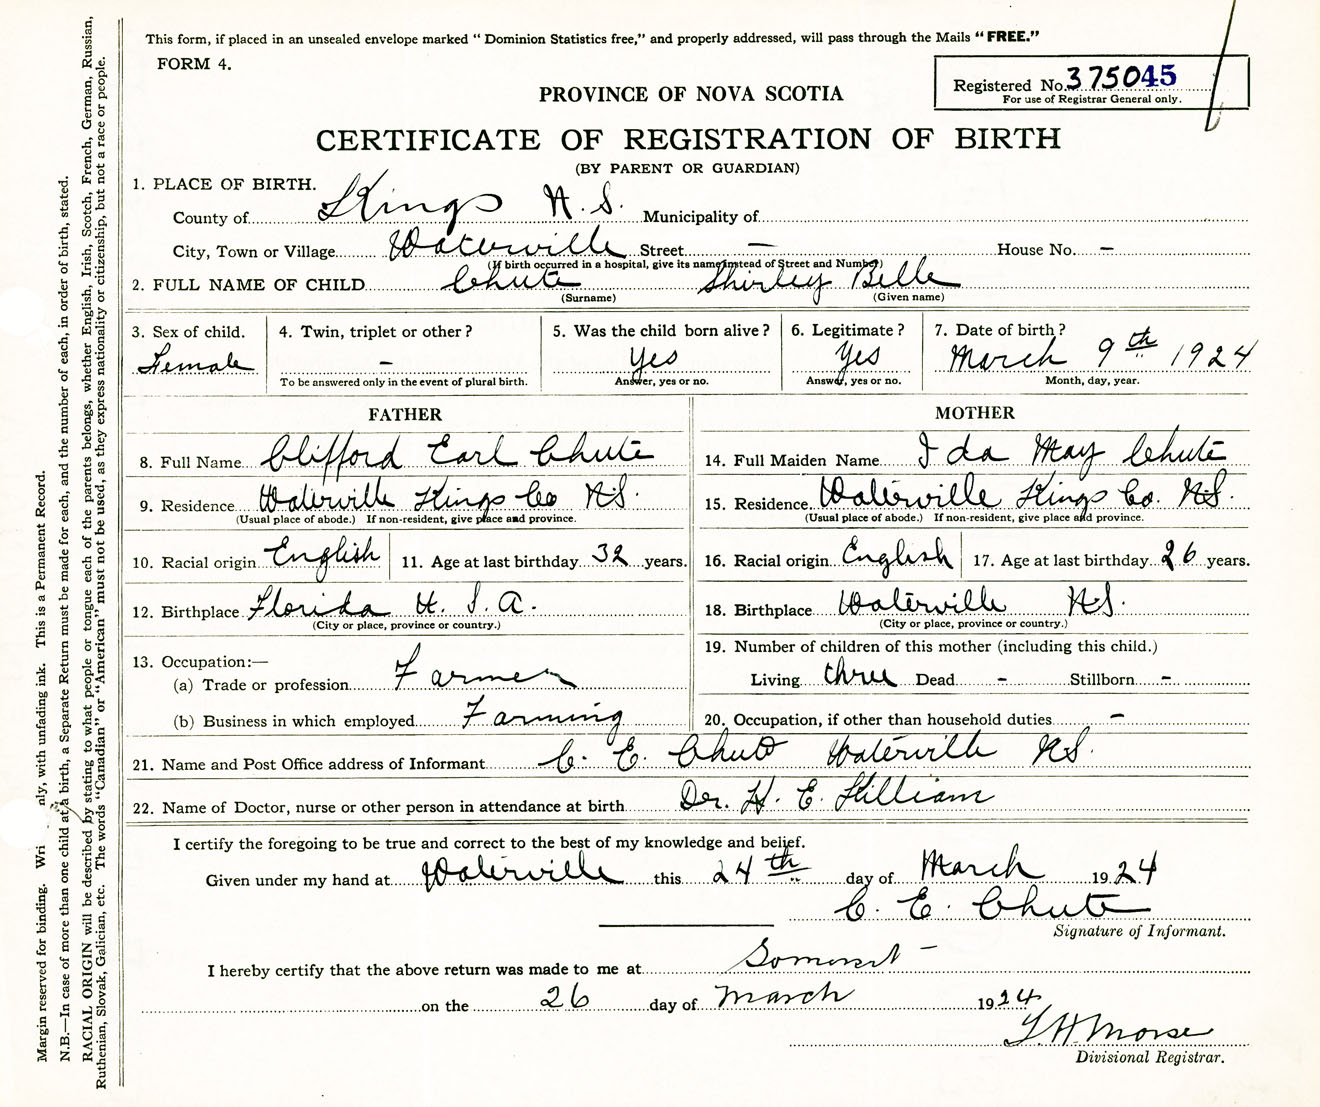 This form, if placed in an unsealed envelope marked "Dominion Statistics free," and properly addressed, will pass through the Mails "FREE."
FORM 4.
Registered No. 375045
For use of Registrar General only.
PROVINCE OF NOVA SCOTIA
CERTIFICATE OF REGISTRATION OF BIRTH
(BY PARENT OR GUARDIAN)
1. PLACE OF BIRTH.
County of Kings N.S. Municipality of
City, Town or Village Waterville Street — House No. —
(If birth occurred in a hospital, give its name instead of Street and Number)
2. FULL NAME OF CHILD Chute Shirley Belle
(Surname) (Given name)
3. Sex of child. 4. Twin, triplet or other? 5. Was the child born alive? 6. Legitimate? 7. Date of birth?
Female – Yes Yes March 9th 1924
To be answered only in the event of plural birth. Answer, yes or no. Answer, yes or no. Month, day, year.
FATHER
8. Full Name Clifford Earl Chute
9. Residence Waterville Kings Co N.S.
(Usual place of abode.) If non-resident, give place and province.
10. Racial origin English 11. Age at last birthday 32 years.
12. Birthplace Florida U.S.A.
(City or place, province or country.)
13. Occupation:—
(a) Trade or profession Farmer
(b) Business in which employed Farming
MOTHER
14. Full Maiden Name Ida May Chute
15. Residence Waterville Kings Co. N.S.
(Usual place of abode.) If non-resident, give place and province.
16. Racial origin English 17. Age at last birthday 26 years.
18. Birthplace Waterville N.S.
(City or place, province or country.)
19. Number of children of this mother (including this child.)
Living three Dead – Stillborn –
20. Occupation, if other than household duties –
21. Name and Post Office address of Informant C. E. Chute Waterville N.S.
22. Name of Doctor, nurse or other person in attendance at birth Dr. H. E. Killiam
I certify the foregoing to be true and correct to the best of my knowledge and belief.
Given under my hand at Waterville this 24th day of March 1924
C. E. Chute
Signature of Informant.
I hereby certify that the above return was made to me at Somerset –
on the 26 day of March 1924
Morse
Divisional Registrar.
Margin reserved for binding. Wri nly, with unfading ink. This is a Permanent Record.
N.B.—In case of more than one child at a birth, a Separate Return must be made for each, and the number of each, in order of birth, stated.
RACIAL ORIGIN will be described by stating to what people or tongue each of the parents belongs, whether English, Irish, Scotch, French, German, Russian,
Ruthenian, Slovak, Galician, etc. The words "Canadian" or "American" must not be used, as they express nationality or citizenship, but not a race or people.